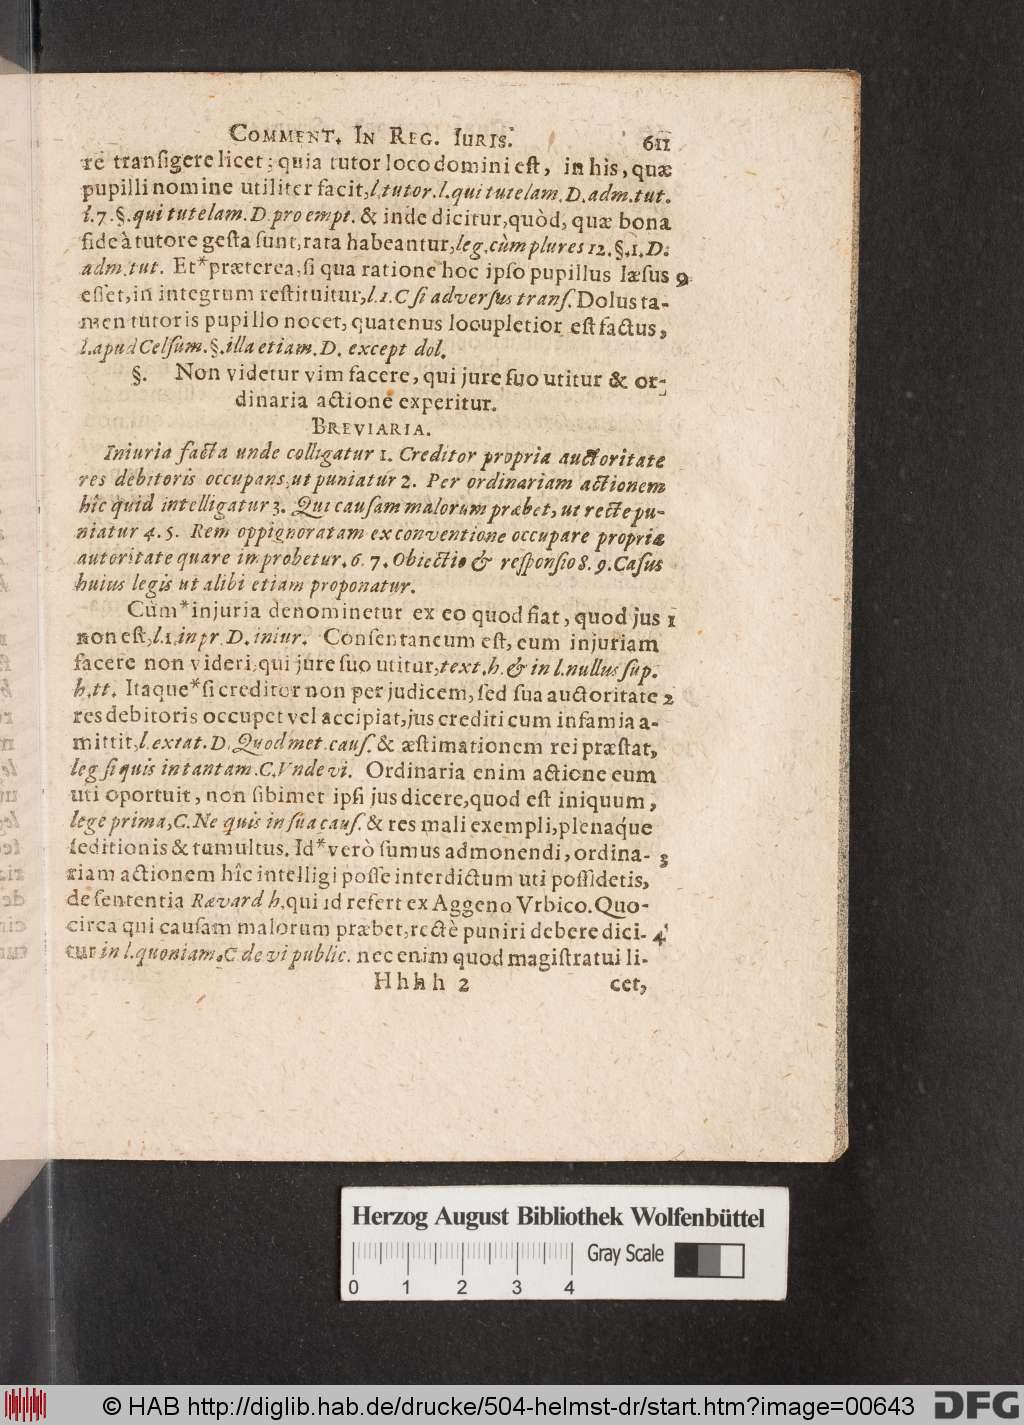 COMMENT. IN REG. IURIS. 611
re transigere licet; quia tutor loco domini est, in his, quæ
pupilli nomine utiliter facit, l. tutor. l. qui tutelam. D. adm. tut.
l. 7. §. qui tutelam. D. pro empt. & inde dicitur, quòd, quæ bona
fide à tutore gesta sunt, rata habeantur, leg. cùm plures 12. §. 1. D.
adm. tut. Et* præterea, si qua ratione hoc ipso pupillus læsus 9
esset, in integrum restituitur, l. 1. C si adversus trans. Dolus ta-
men tutoris pupillo nocet, quatenus locupletior est factus,
l. apud Celsum. §. illa etiam. D. except dol.
§. Non videtur vim facere, qui jure suo utitur & or-
dinaria actione experitur.
BREVIARIA.
Iniuria facta unde colligatur 1. Creditor propria auctoritate
res debitoris occupans, ut puniatur 2. Per ordinariam actionem
hîc quid intelligatur 3. Qui causam malorum præbet, ut recte pu-
niatur 4. 5. Rem oppignoratam ex conventione occupare propria
autoritate quare improbetur. 6. 7. Obiectio & responsio 8. 9. Casus
huius legis ut alibi etiam proponatur.
Cùm* injuria denominetur ex eo quod fiat, quod jus 1
non est, l. 1. in pr. D. iniur. Consentaneum est, eum injuriam
facere non videri, qui jure suo utitur, text. h. & in l. nullus sup.
h. tt. Itaque* si creditor non per judicem, sed sua auctoritate 2
res debitoris occupet vel accipiat, jus crediti cum infamia a-
mittit, l. extat. D. Quod met. caus. & æstimationem rei præstat,
leg si quis in tantam. C. Vnde vi. Ordinaria enim actione eum
uti oportuit, non sibimet ipsi jus dicere, quod est iniquum,
lege prima, C. Ne quis in sua caus. & res mali exempli, plenaq́ue
seditionis & tumultus. Id* verò sumus admonendi, ordina- 3
riam actionem hîc intelligi posse interdictum uti possidetis,
de sententia Rævard h. qui id refert ex Aggeno Vrbico. Quo-
circa qui causam malorum præbet, rectè puniri debere dici- 4
tur in l. quoniam. C de vi public. nec enim quod magistratui li-
Hhhh 2 cet,
Herzog August Bibliothek Wolfenbüttel
Gray Scale
0 1 2 3 4
© HAB http://diglib.hab.de/drucke/504-helmst-dr/start.htm?image=00643 DFG